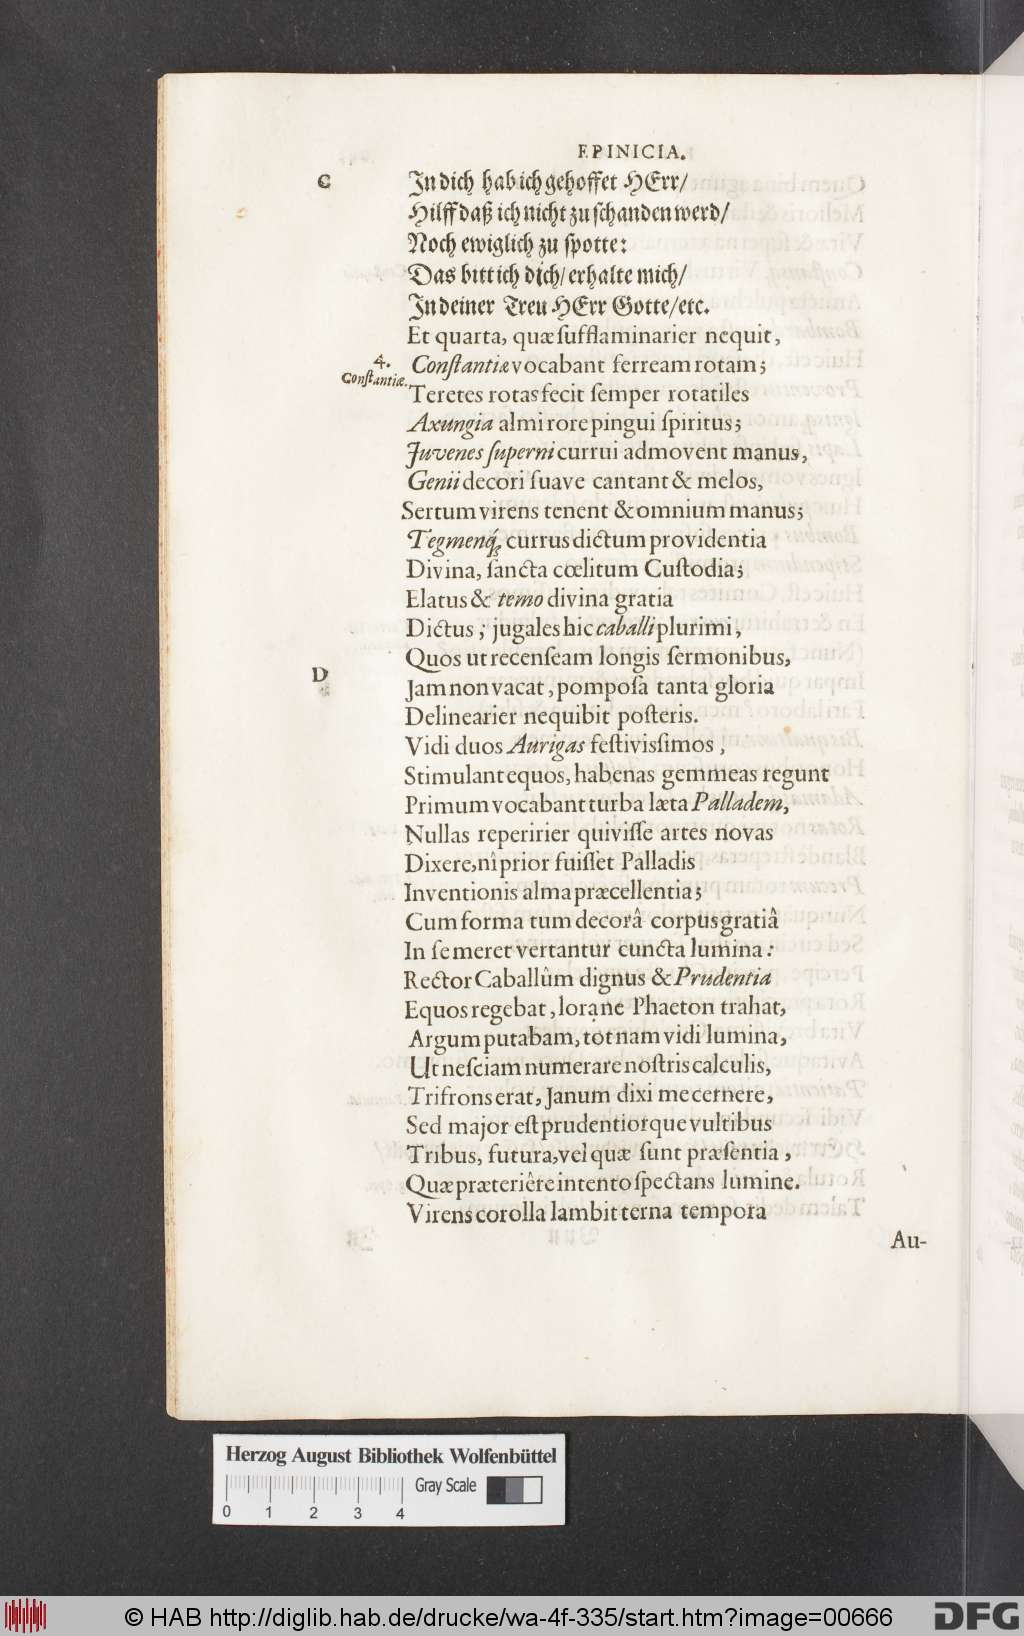 EPINICIA.
C
In dich hab ich gehoffet HErr/
Hilff daß ich nicht zu schanden werd/
Noch ewiglich zu spotte:
Das bitt ich dich/ erhalte mich/
In deiner Treu HErr Gotte/etc.
Et quarta, quæ sufflaminarier nequit,
4.
Constantiæ.
Constantiæ vocabant ferream rotam;
Teretes rotas fecit semper rotatiles
Axungia almi rore pingui spiritus;
Juvenes superni currui admovent manus,
Genii decori suave cantant & melos,
Sertum virens tenent & omnium manus;
Tegmenq́; currus dictum providentia
Divina, sancta cœlitum Custodia;
Elatus & temo divina gratia
Dictus; jugales hic caballi plurimi,
Quos ut recenseam longis sermonibus,
D
Jam non vacat, pomposa tanta gloria
Delinearier nequibit posteris.
Vidi duos Aurigas festivissimos,
Stimulant equos, habenas gemmeas regunt
Primum vocabant turba læta Palladem,
Nullas reperirier quivisse artes novas
Dixere, nî prior fuisset Palladis
Inventionis alma præcellentia;
Cum forma tum decorâ corpus gratiâ
In se meret vertantur cuncta lumina:
Rector Caballûm dignus & Prudentia
Equos regebat, lora ne Phaeton trahat,
Argum putabam, tot nam vidi lumina,
Ut nesciam numerare nostris calculis,
Trifrons erat, Janum dixi me cernere,
Sed major est prudentiorque vultibus
Tribus, futura, vel quæ sunt præsentia,
Quæ præteriêre intento spectans lumine.
Virens corolla lambit terna tempora
Au-
Herzog August Bibliothek Wolfenbüttel
Gray Scale
0 1 2 3 4
© HAB http://diglib.hab.de/drucke/wa-4f-335/start.htm?image=00666
DFG